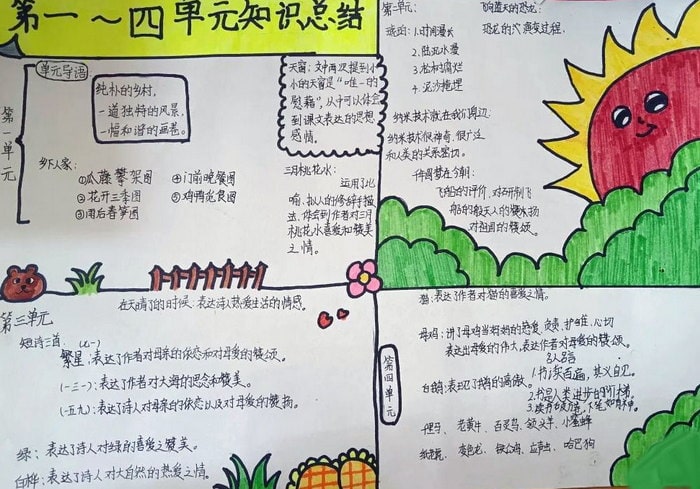 第一~四单元知识总结
第一单元
单元导语
纯朴的乡村，
一道独特的风景，
一幅和谐的画卷。
乡下人家：
①瓜藤攀架图
②花开三季图
③雨后春笋图
④门前晚餐图
⑤鸡鸭觅食图
天窗：文中两次提到小
小的天窗是“唯一的
慰藉”，从中可以体会
到课文表达的思想
感情。
三月桃花水：
运用了比
喻、拟人的修辞手法
体会到作者对三月
桃花水喜爱和赞美
之情。
第二单元：
琥珀：1.时间漫长
2.
3.松树腐烂
4.泥沙掩埋
飞向蓝天的恐龙：
恐龙的演变过程.
纳米技术就在我们身边：
纳米技术很神奇，很广泛
和人类的关系密切。
千年梦在今朝：
飞船的评价，对研制飞
船的航天人的赞扬
对祖国的赞颂。
第三单元
在天晴了的时候：表达诗人热爱生活的情感。
短诗三首：
繁星：表达了作者对母亲的依恋和对母爱的赞颂。
(一三一)：表达了作者对大海的思念和赞美。
(一五九)：表达了诗人对母亲的依恋以及对母爱的赞扬。
绿：表达了诗人对绿的喜爱之赞美。
白桦：表达了诗人对大自然的热爱之情。
第四单元
猫：表达了作者对猫的喜爱之情。
母鸡：讲了母鸡当妈妈的慈爱、负责、护雏、心切
表达出母爱的伟大，表达作者对母爱的赞颂。
名人名言
白鹅：表现了鹅的高傲。
1.书读百遍，其义自见。
2.书是人类进步的阶梯.
3.读书破万卷，下笔如有神。
老黄牛 百灵鸟 领头羊 小蜜蜂
纸老虎 变色龙 铁公鸡 应声虫 哈巴狗